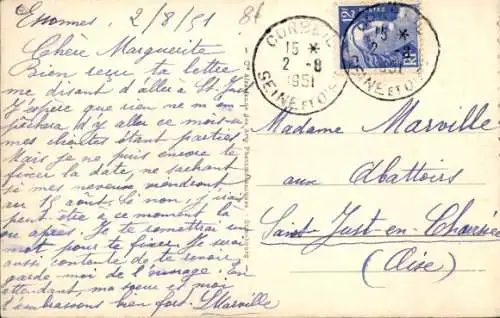 Essonnes 2/8/51
Chère Marguerite
Bien reçu ta lettre
me disant d'aller à St Just
J'espère que rien ne m'em
pêchera d'y aller ce mois-ci
mes étant parties.
Mais je ne puis encore te
fixer la date, ne sachant
si mes neveux viendront
au 15 août. Si non, j'irais
peut-être à ce moment là
ou après. Je te remettrai un
mot pour te fixer. Je serai
aussi contente de te revoir
garde moi de l'ouvrage. En
attendant, ma sœur et moi
t'embrassons bien fort. L Marville
CORBEIL
15 *
2 -8
1951
SEINE ET OISE
Madame Marville
aux Abattoirs
Saint-Just-en-Chaussée
(Oise)